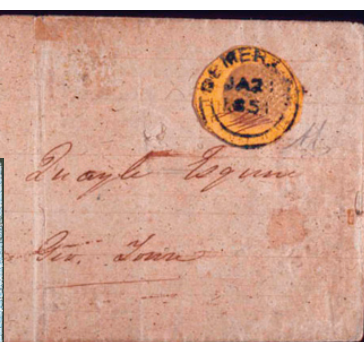 DEMERA
JA 21
1851
Quayle Esquire
Geo. Town